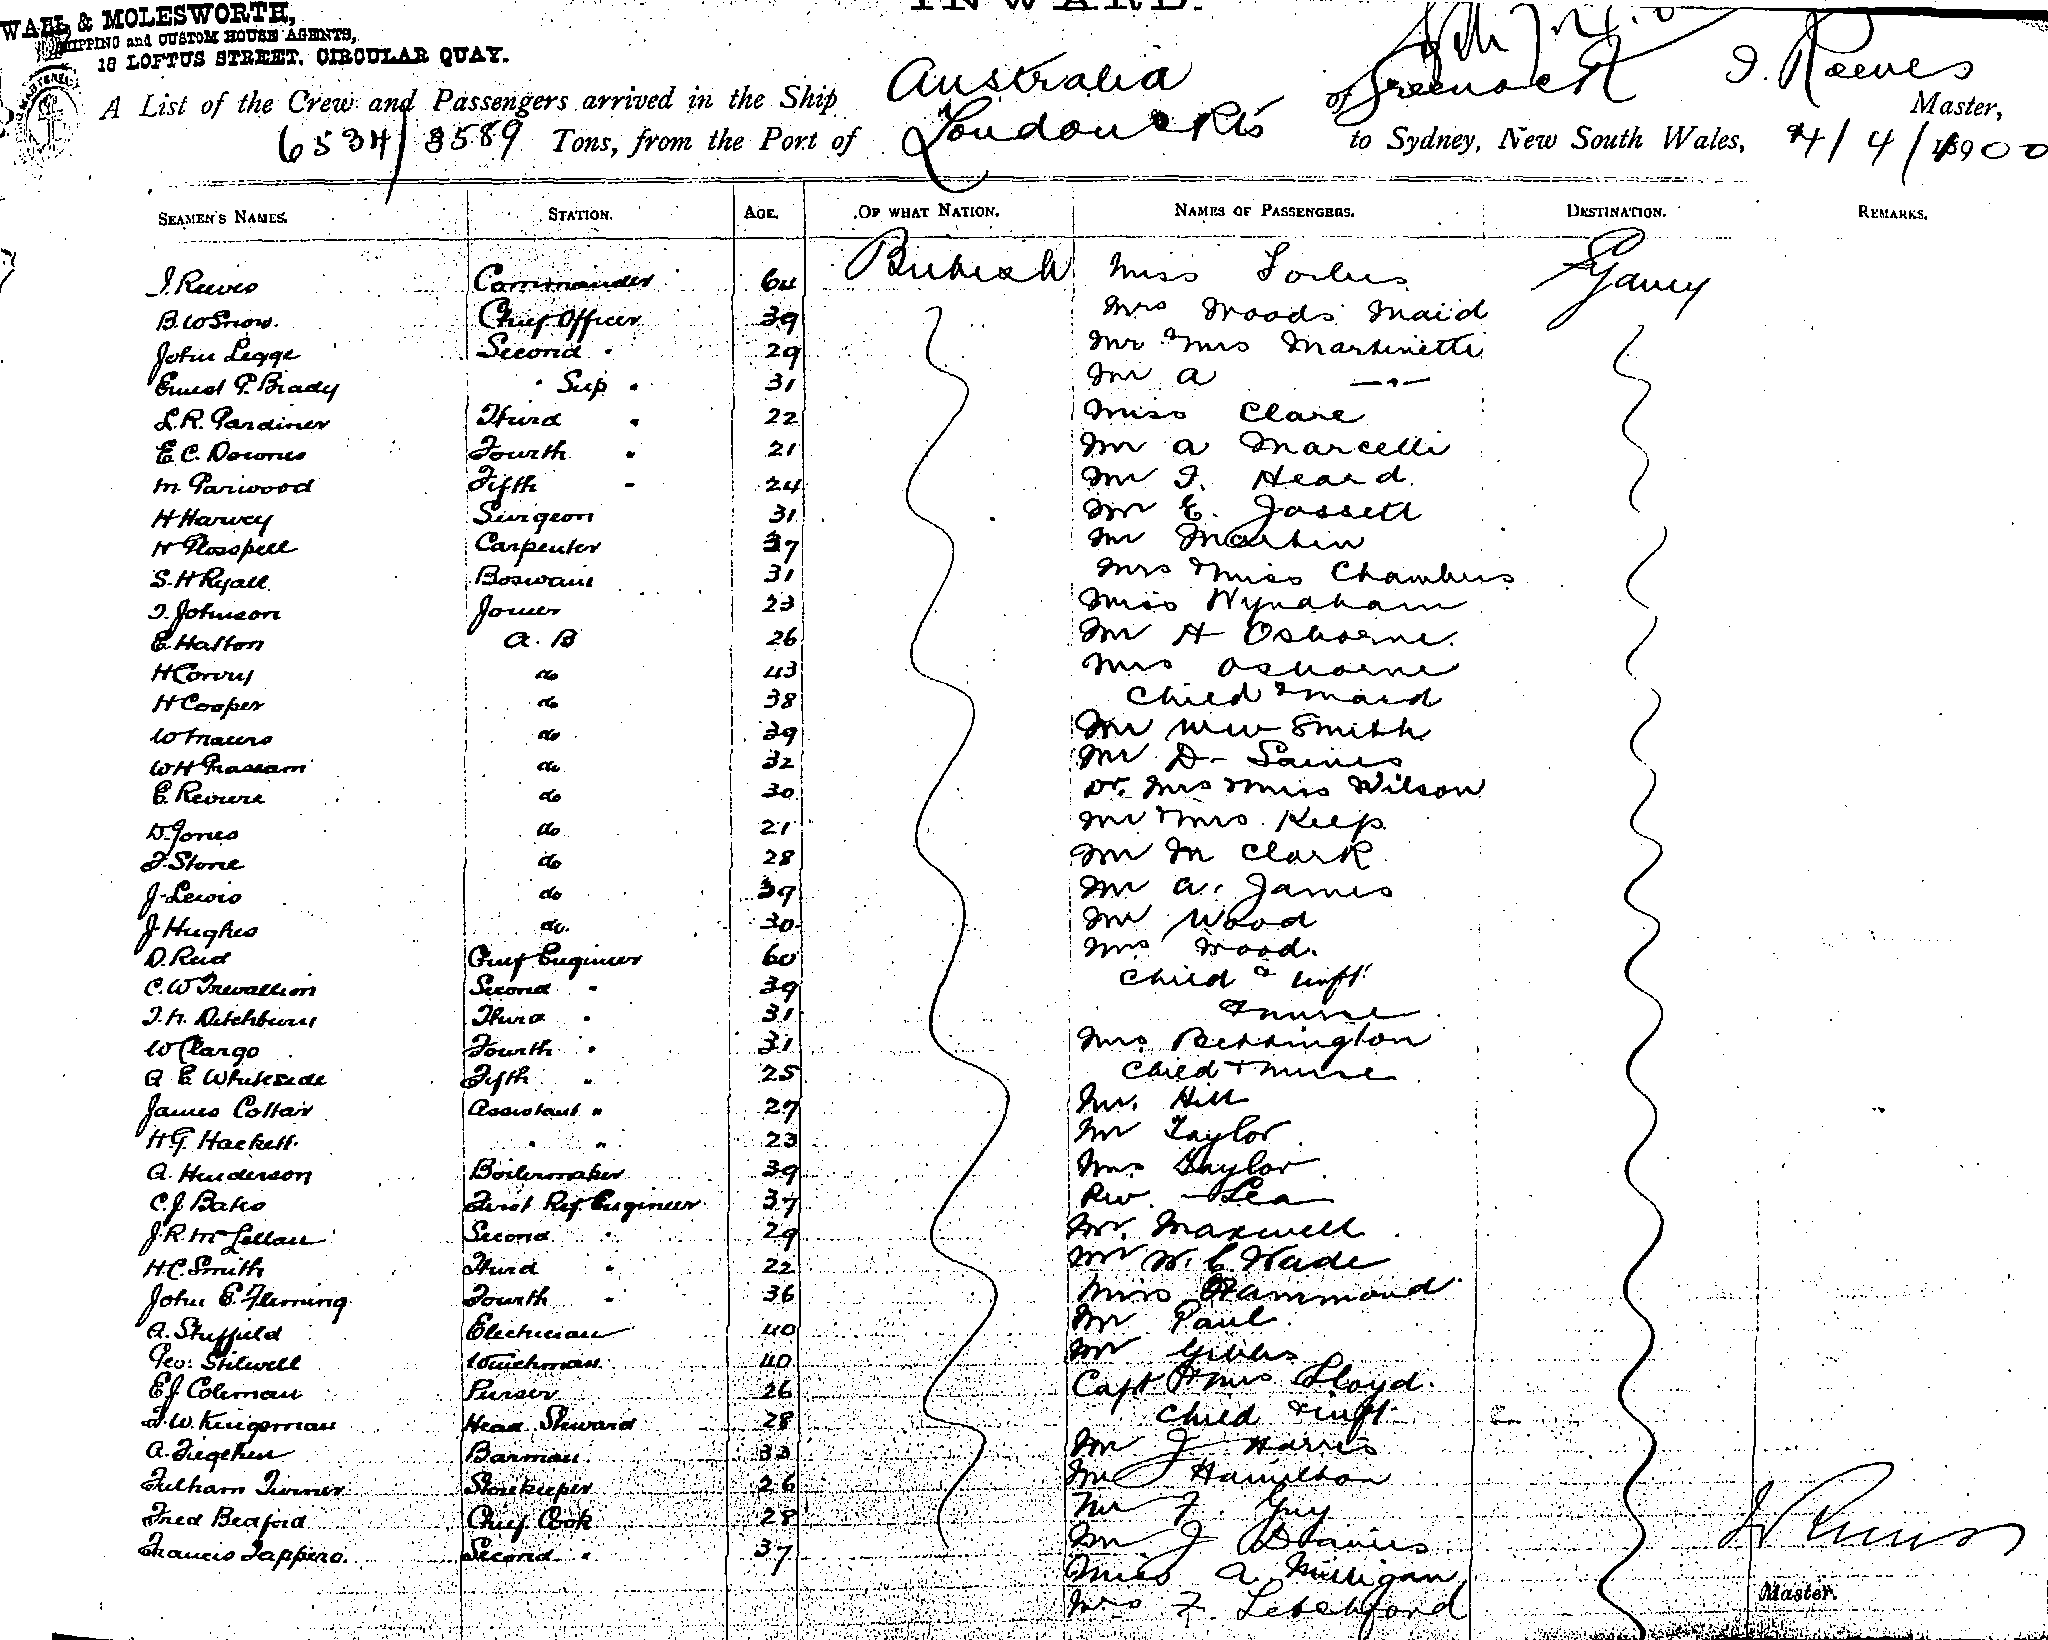 INWARD.
WALL & MOLESWORTH,
SHIPPING and CUSTOM HOUSE AGENTS,
18 LOFTUS STREET. CIRCULAR QUAY.
A List of the Crew and Passengers arrived in the Ship Australia of Greenock J. Reeves Master,
6534/3589 Tons, from the Port of London & Pts to Sydney, New South Wales, 4/4/1900
SEAMEN'S NAMES. STATION. AGE. OF WHAT NATION. NAMES OF PASSENGERS. DESTINATION. REMARKS.
J. Reeves Commander 64 British Miss Forbes Sydney
B. W Snow. Chief Officer 39 Mrs Woods Maid
John Legge Second " 29 Mr & Mrs Martinetti
Ernest P. Brady " Sup " 31 Mr A —"—
L. R. Gardiner Third " 22 Miss Clare
E. C. Downes Fourth " 21 Mr A Marcelli
M. Garwood Fifth " 24 Mr J. Heard
H Harvey Surgeon 31 Mr E. Jassett
H Glosspell Carpenter 37 Mr Martin
S. H Ryall Boswain 31 Mrs & Miss Chambers
J. Johnson Joiner 23 Miss Wyndham
E. Halton A. B 26 Mr H Osborne.
H Corvy do 43 Mrs Osborne
H Cooper do 38 Child & Maid
W do 39 Mr Wm Smith
W H do 32 Mr D
E. Reoure do 30 Dr. Mrs & Miss Wilson
D. Jones do 21 Mr & Mrs Keep
F. Stone do 28 Mr M Clark
J. Lewis do 39 Mr A. James
J Hughes do. 30 Mr Wood
D. Reid Chief Engineer 60 Mrs Wood.
C. W Trevallion Second " 39 Child & Inft
J. H. Ditchburn Third " 31 & nurse
W Clargo Fourth " 31 Mrs Bettington
A. E Whiteside Fifth " 25 Child & nurse
James Collar Assistant " 27 Mr. Hill
H. G. Hackett " " 23 Mr Taylor
A. Henderson Boilermaker 39 Mrs Taylor
C. J. Bates First Ref. Engineer 37 Rev. Lea
J. R. McLellan Second " 29 Mr. Maxwell
H C. Smith Third " 22 Mr W. C. Wade
John E. Fleming Fourth " 36 Miss Hammond
A. Sheffield Electrician 40 Mr Paul
Geo. Stilwell Winchman 40 Mr Gibbs
E J Coleman Purser 26 Capt & Mrs Lloyd.
F. W. Kingsman Head Steward 28 Child & inft
A. Barman 33 Mr J Harris
Fulham Turner Storekeeper 26 Mr Hamilton
Fred Bedford Chief Cook 28 Mr F. Guy
Francis Tappero. Second " 37 Mr J Davies
Miss A. Milligan
Mrs F. Letchford
J Reeves
Master.